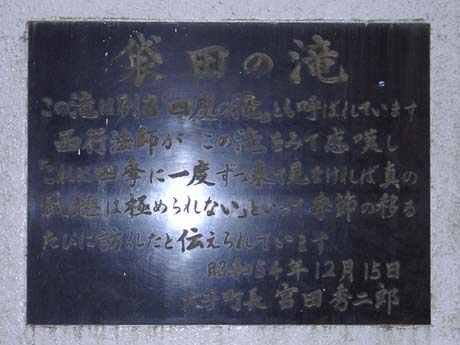 袋田の滝
この滝は別名「四度の滝」とも呼ばれています
西行法師が この滝をみて感嘆し
「これは四季に一度ずつ来て見なければ真の
風趣は極められない」といって季節の移る
たびに訪れたと伝えられています
昭和54年12月15日
大子町長 宮田秀二郎